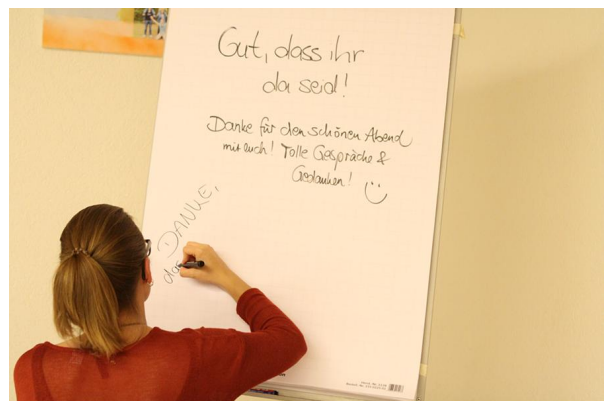 Gut, dass ihr
da seid!
Danke für den schönen Abend
mit euch! Tolle Gespräche &
Gedanken!
DANKE,
das